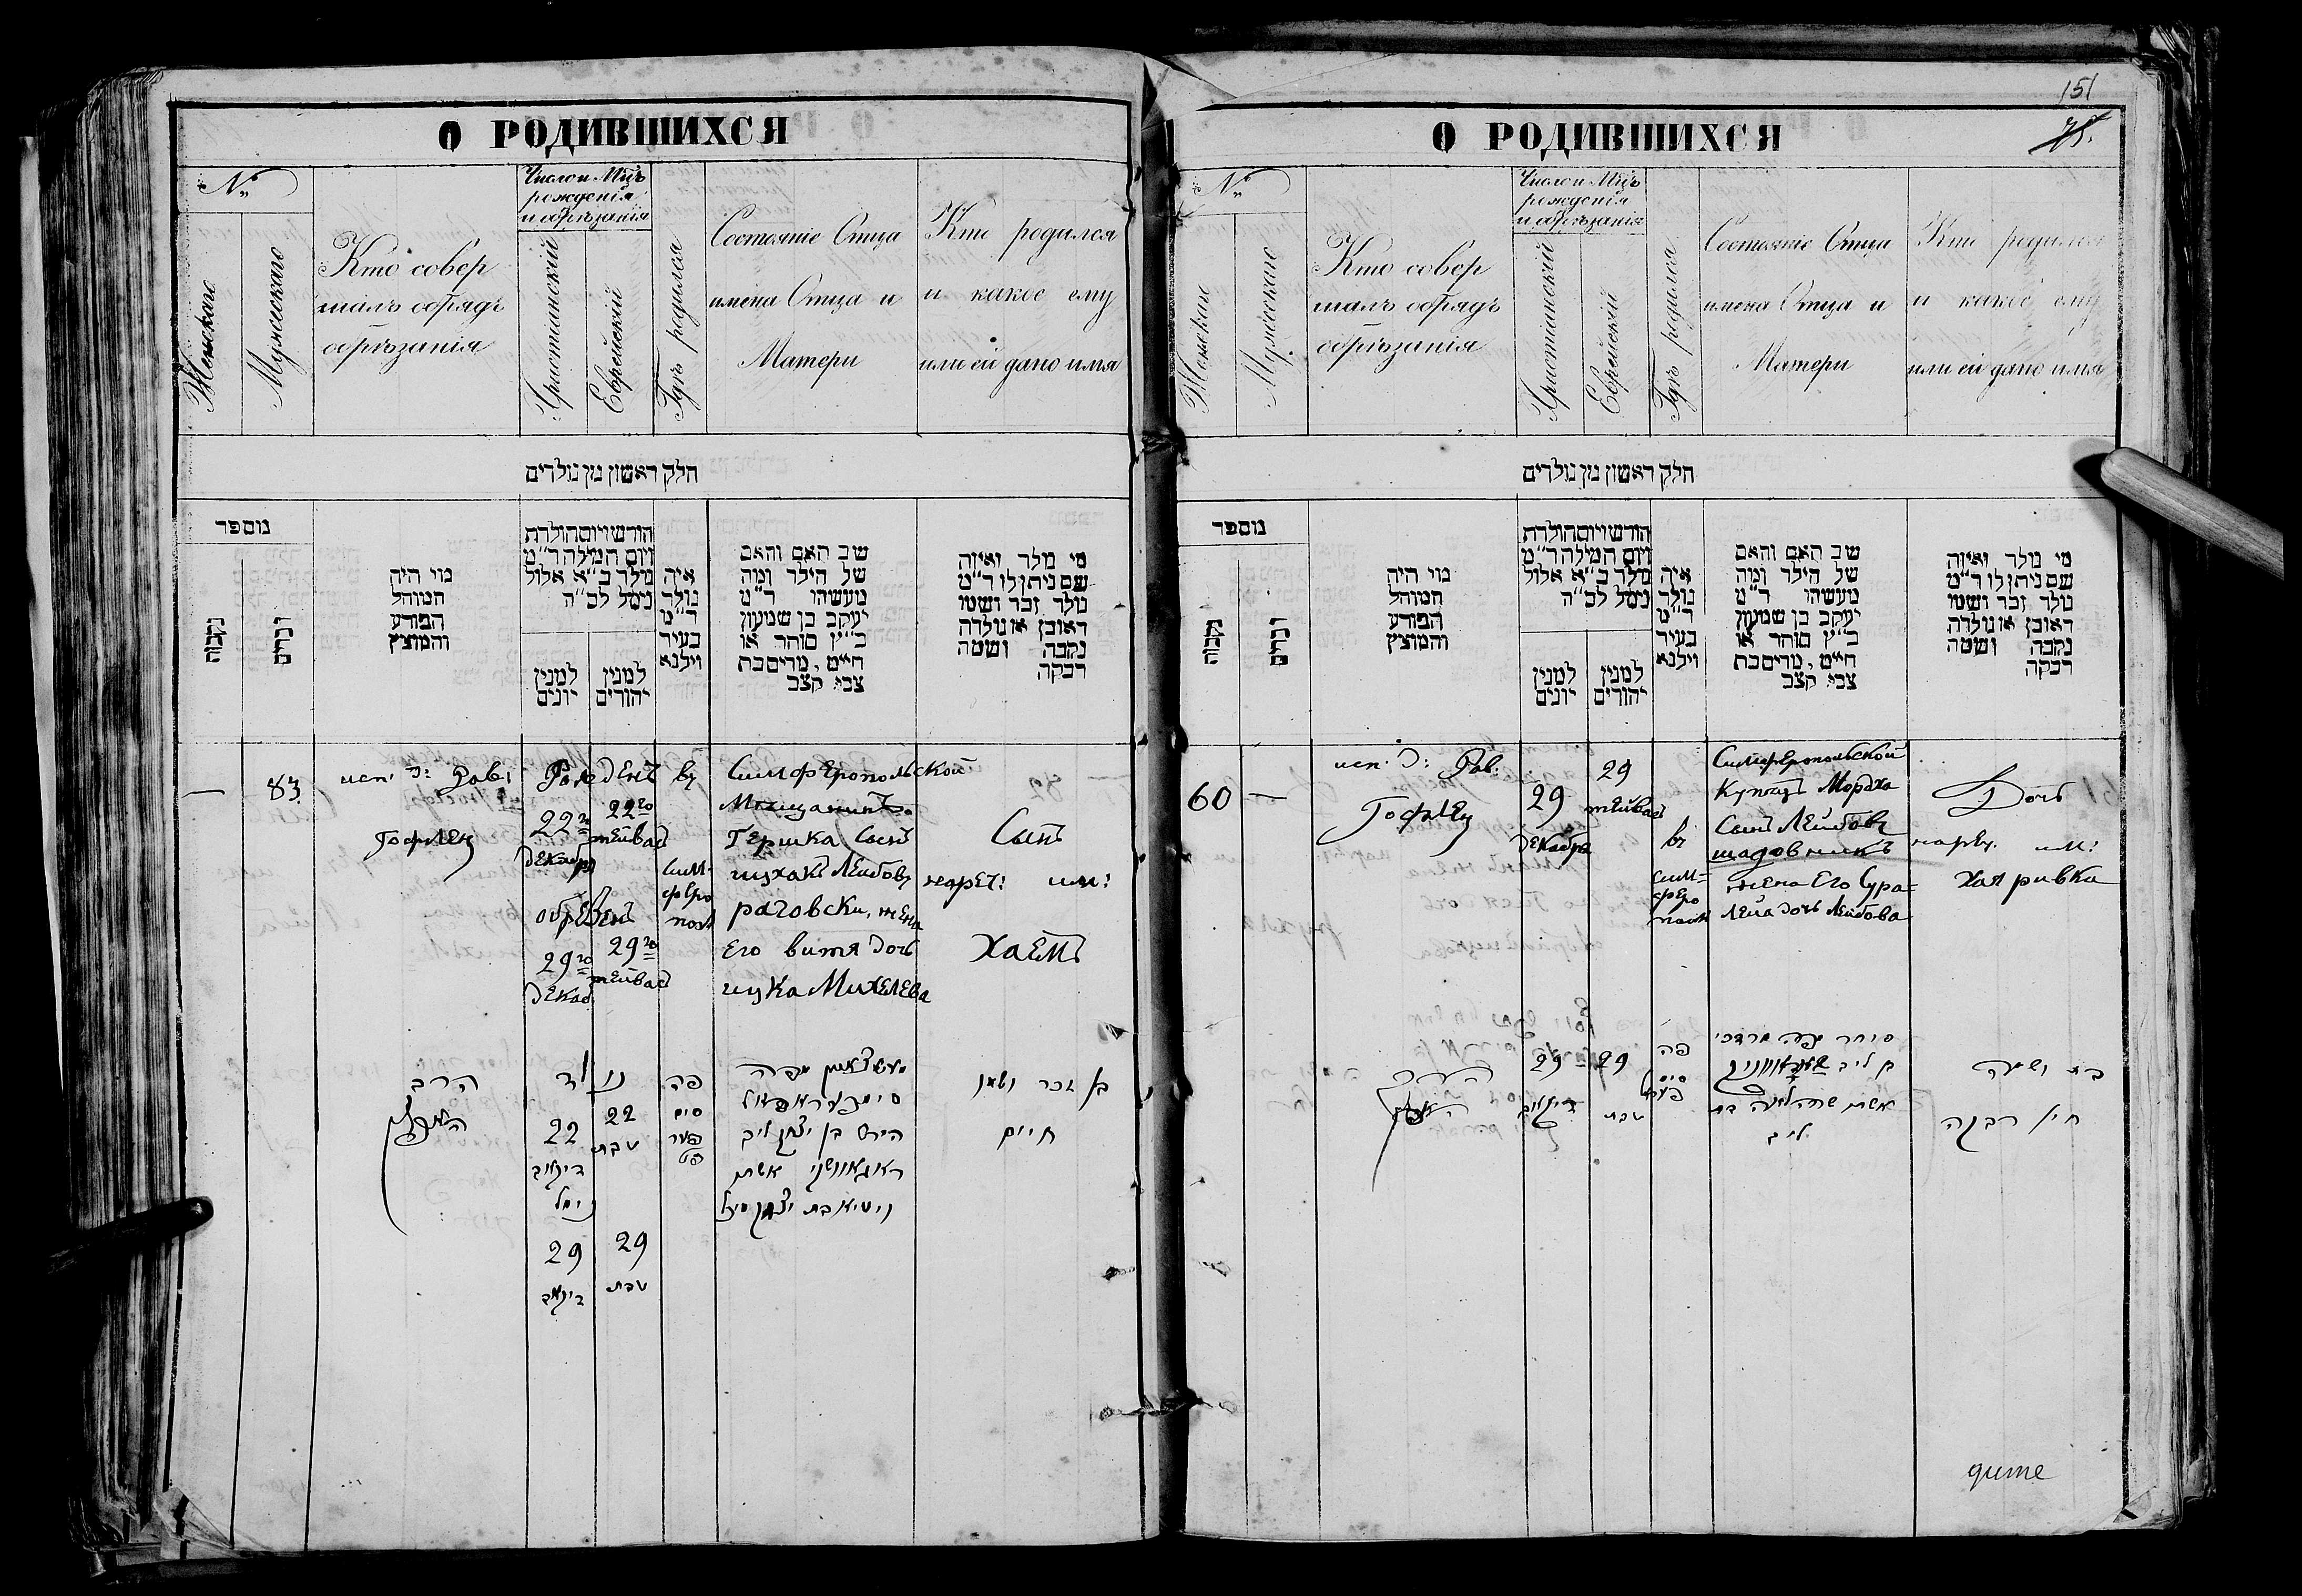 О РОДИВШИХСЯ
№
Женскаго
Мужескаго
Кто совер
шалъ обрядъ
обрѣзанія
Число и Мцъ
рожденія
и обрѣзанія
Христіанскій
Еврейскій
Гдѣ родился
Состояніе Отца
имена Отца и
Матери
Кто родился
и какое ему
или ей дано имя
חלק ראשון מן נולדים
מספר
נקבות
זכרים
מי היה
המוהל
הפורע
והמוצץ
חודש ויום הולדת
ויום המילה ד״מ
נולד כ״א אלול
נימל לכ״ה
למנין
יונים
למנין
יהודים
איה
נולד
ד״מ
בעיר
וילנא
שב האם והאם
של הילד ומה
מעשהו ד״מ
יעקב בן שמעון
כ״ץ סוחר או
חייט, מרים בת
צבי קצב
מי נולד ואיזה
שם ניתן לו ד״מ
נולד זכר ושמו
ראובן או נולדה
נקבה ושמה
רבקה
—
83
исп: д: Рав:
Гофлец
Рожденъ
22го
декабр
22го
тейвас
обрезенъ
29го
декаб
29го
тейвас
въ
сим-
феро
пол
Симферопольской
Мещанинъ
Гершка Сынъ
ицхакъ Лейбовъ
раговски, жена
Его витя дочь
ицка Михелева
Сынъ
нарет: им:
Хаемъ
הרב
22
22
טבת
פה
סים
פער
הירש בן יצחק ליב
בן זכר ושמו
חיים
29
29
טבת
151
75.
О РОДИВШИХСЯ
№
Женскаго
Мужескаго
Кто совер
шалъ обрядъ
обрѣзанія
Число и Мцъ
рожденія
и обрѣзанія
Христіанскій
Еврейскій
Гдѣ родился
Состояніе Отца
имена Отца и
Матери
Кто родился
и какое ему
или ей дано имя
חלק ראשון מן נולדים
מספר
נקבות
זכרים
מי היה
המוהל
הפורע
והמוצץ
חודש ויום הולדת
ויום המילה ד״מ
נולד כ״א אלול
נימל לכ״ה
למנין
יונים
למנין
יהודים
איה
נולד
ד״מ
בעיר
וילנא
שב האם והאם
של הילד ומה
מעשהו ד״מ
יעקב בן שמעון
כ״ץ סוחר או
חייט, מרים בת
צבי קצב
מי נולד ואיזה
שם ניתן לו ד״מ
נולד זכר ושמו
ראובן או נולדה
נקבה ושמה
רבקה
60
—
исп: д: Рав:
Гофлец
29
декабра
29
тейвас
въ
сим-
феро
пол
Симферопольской
Купецъ Мордха
Сынъ Лейбовъ
шадовникъ
жена Его Сура-
Лейа дочь Лейбова
Дочь
нарѣч. им:
Хая ривка
29
29
טבת
פה
סוחר מפה מרדכי
אשתו שרה לאה בת
ליב
בת ושמה
חיי רבקה